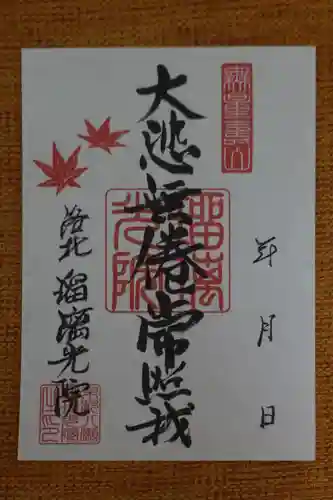 無量壽山
年月日
大悲無倦常照我
瑠璃
光院
洛北 瑠璃光院